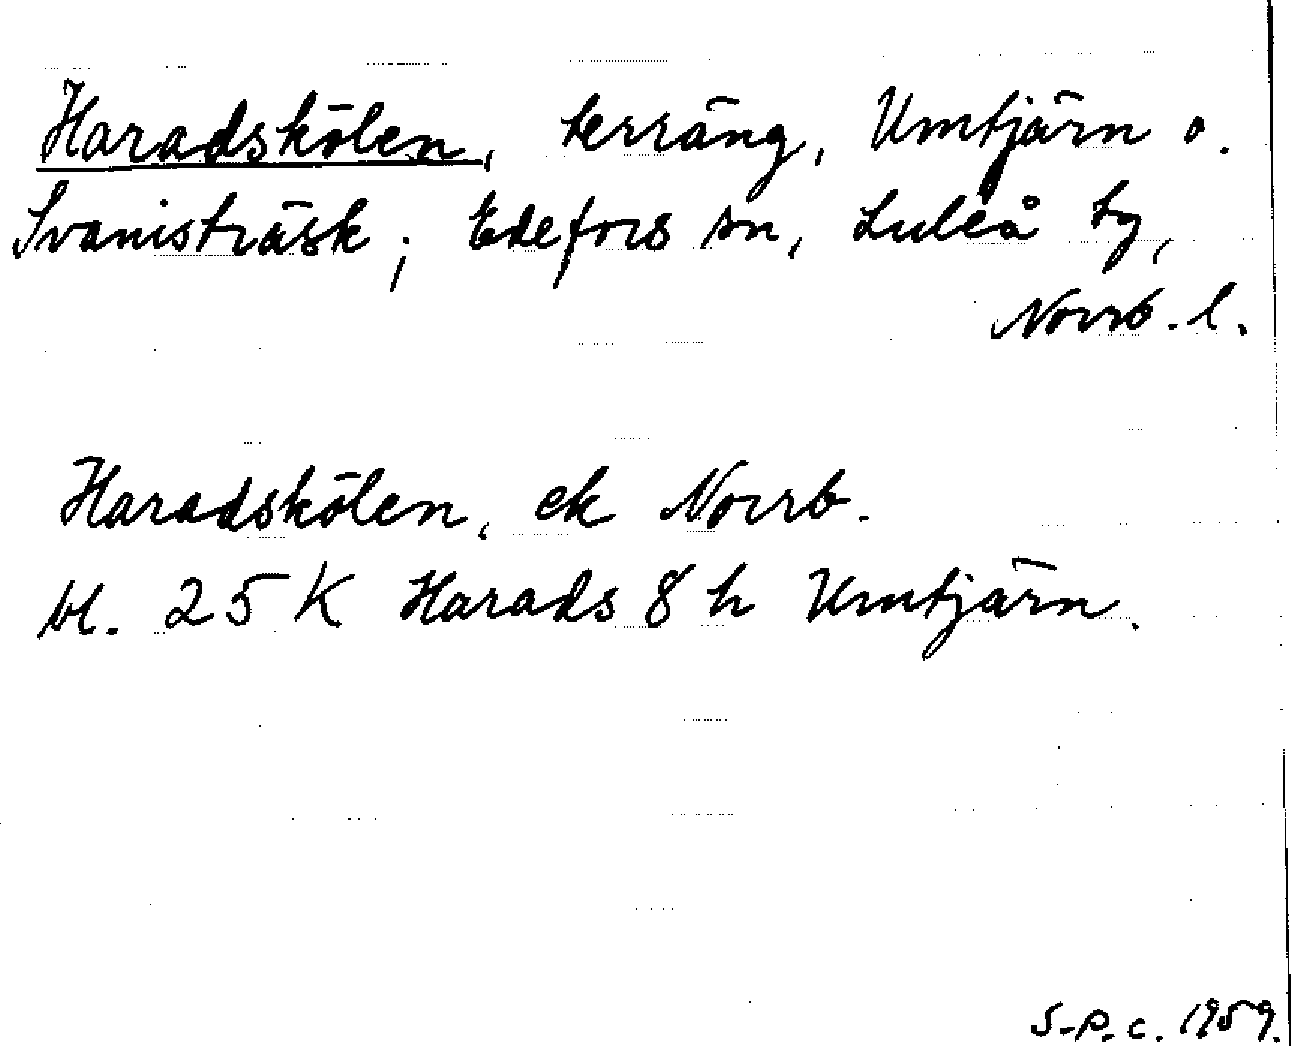 Haradskölen, terräng, Umtjärn o.
Svanisträsk; Edefors sn, Luleå tg,
Norrb. l.
Haradskölen, ek Norrb.
bl. 25 K Harads 8 h Umtjärn.
S-P. c. 1959.